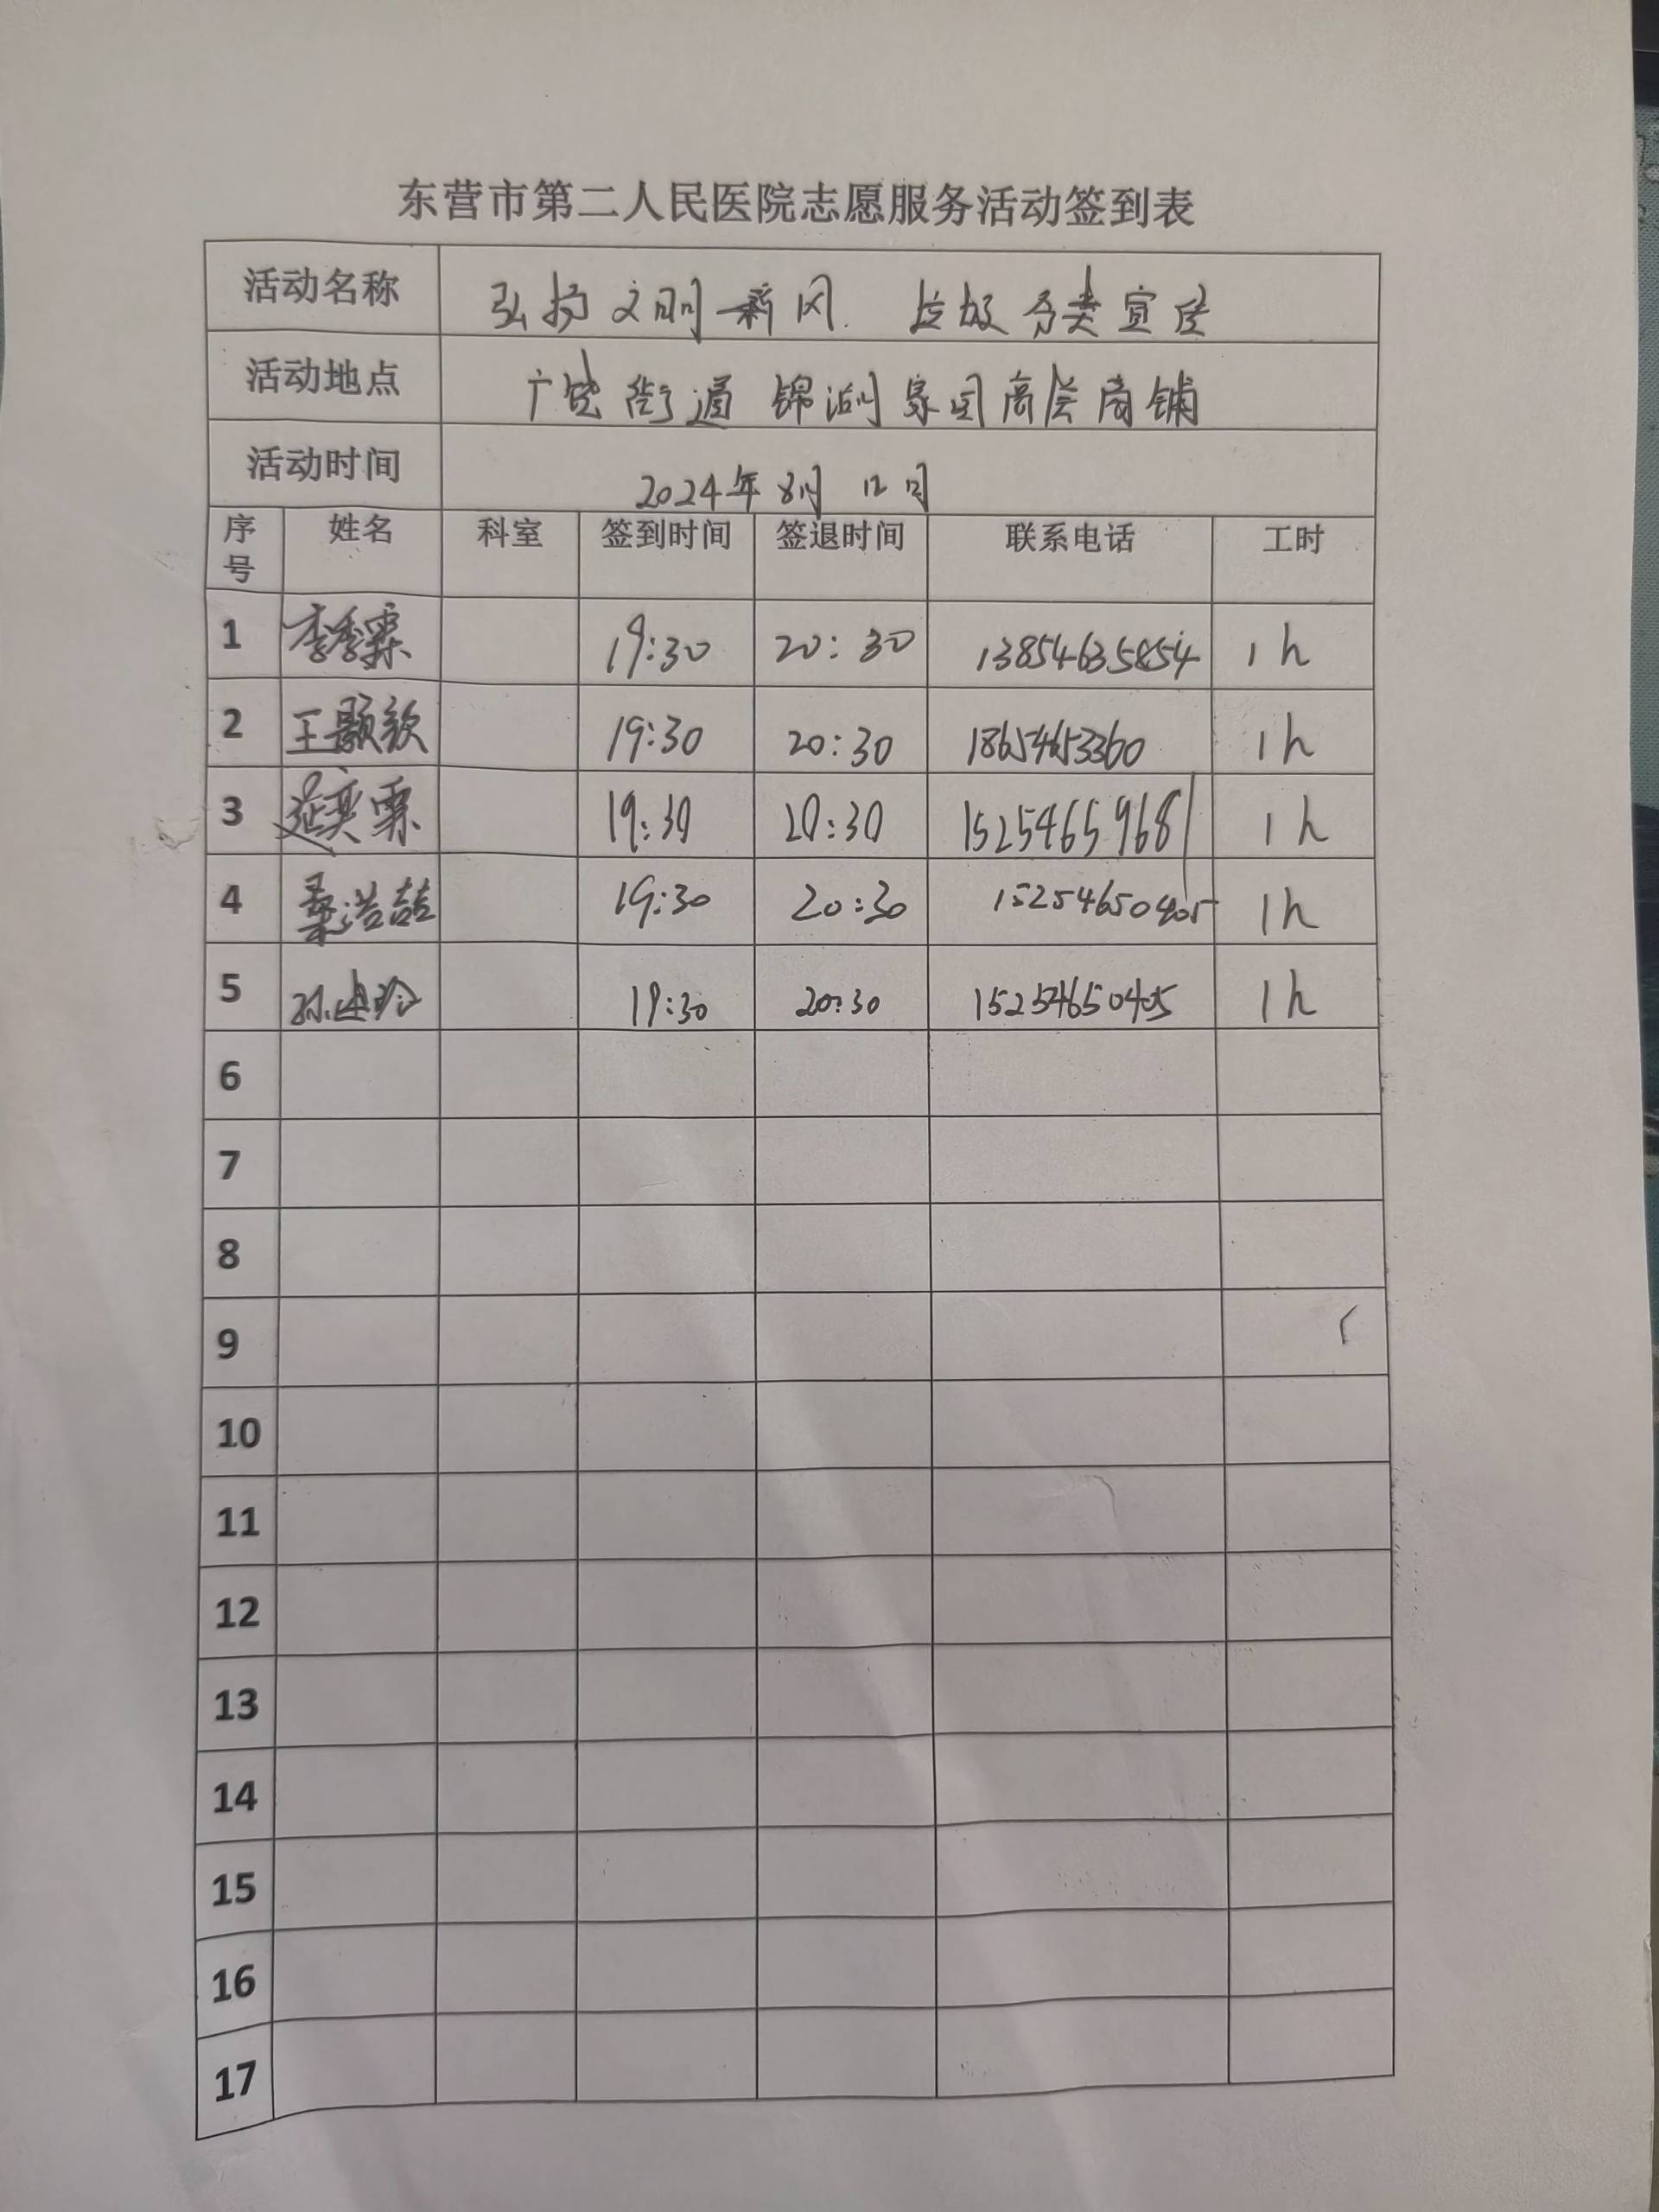 东营市第二人民医院志愿服务活动签到表
活动名称 弘扬文明新风 垃圾分类宣传
活动地点 广饶街道 锦湖家园高层商铺
活动时间 2024年8月12日
序号 姓名 科室 签到时间 签退时间 联系电话 工时
1 李季霖 19:30 20:30 13854635854 1h
2 王颢钦 19:30 20:30 18654653360 1h
3 延奕霖 19:30 20:30 15254659681 1h
4 桑浩喆 19:30 20:30 15254650405 1h
5 孙迪玲 19:30 20:30 15254650405 1h
6
7
8
9
10
11
12
13
14
15
16
17